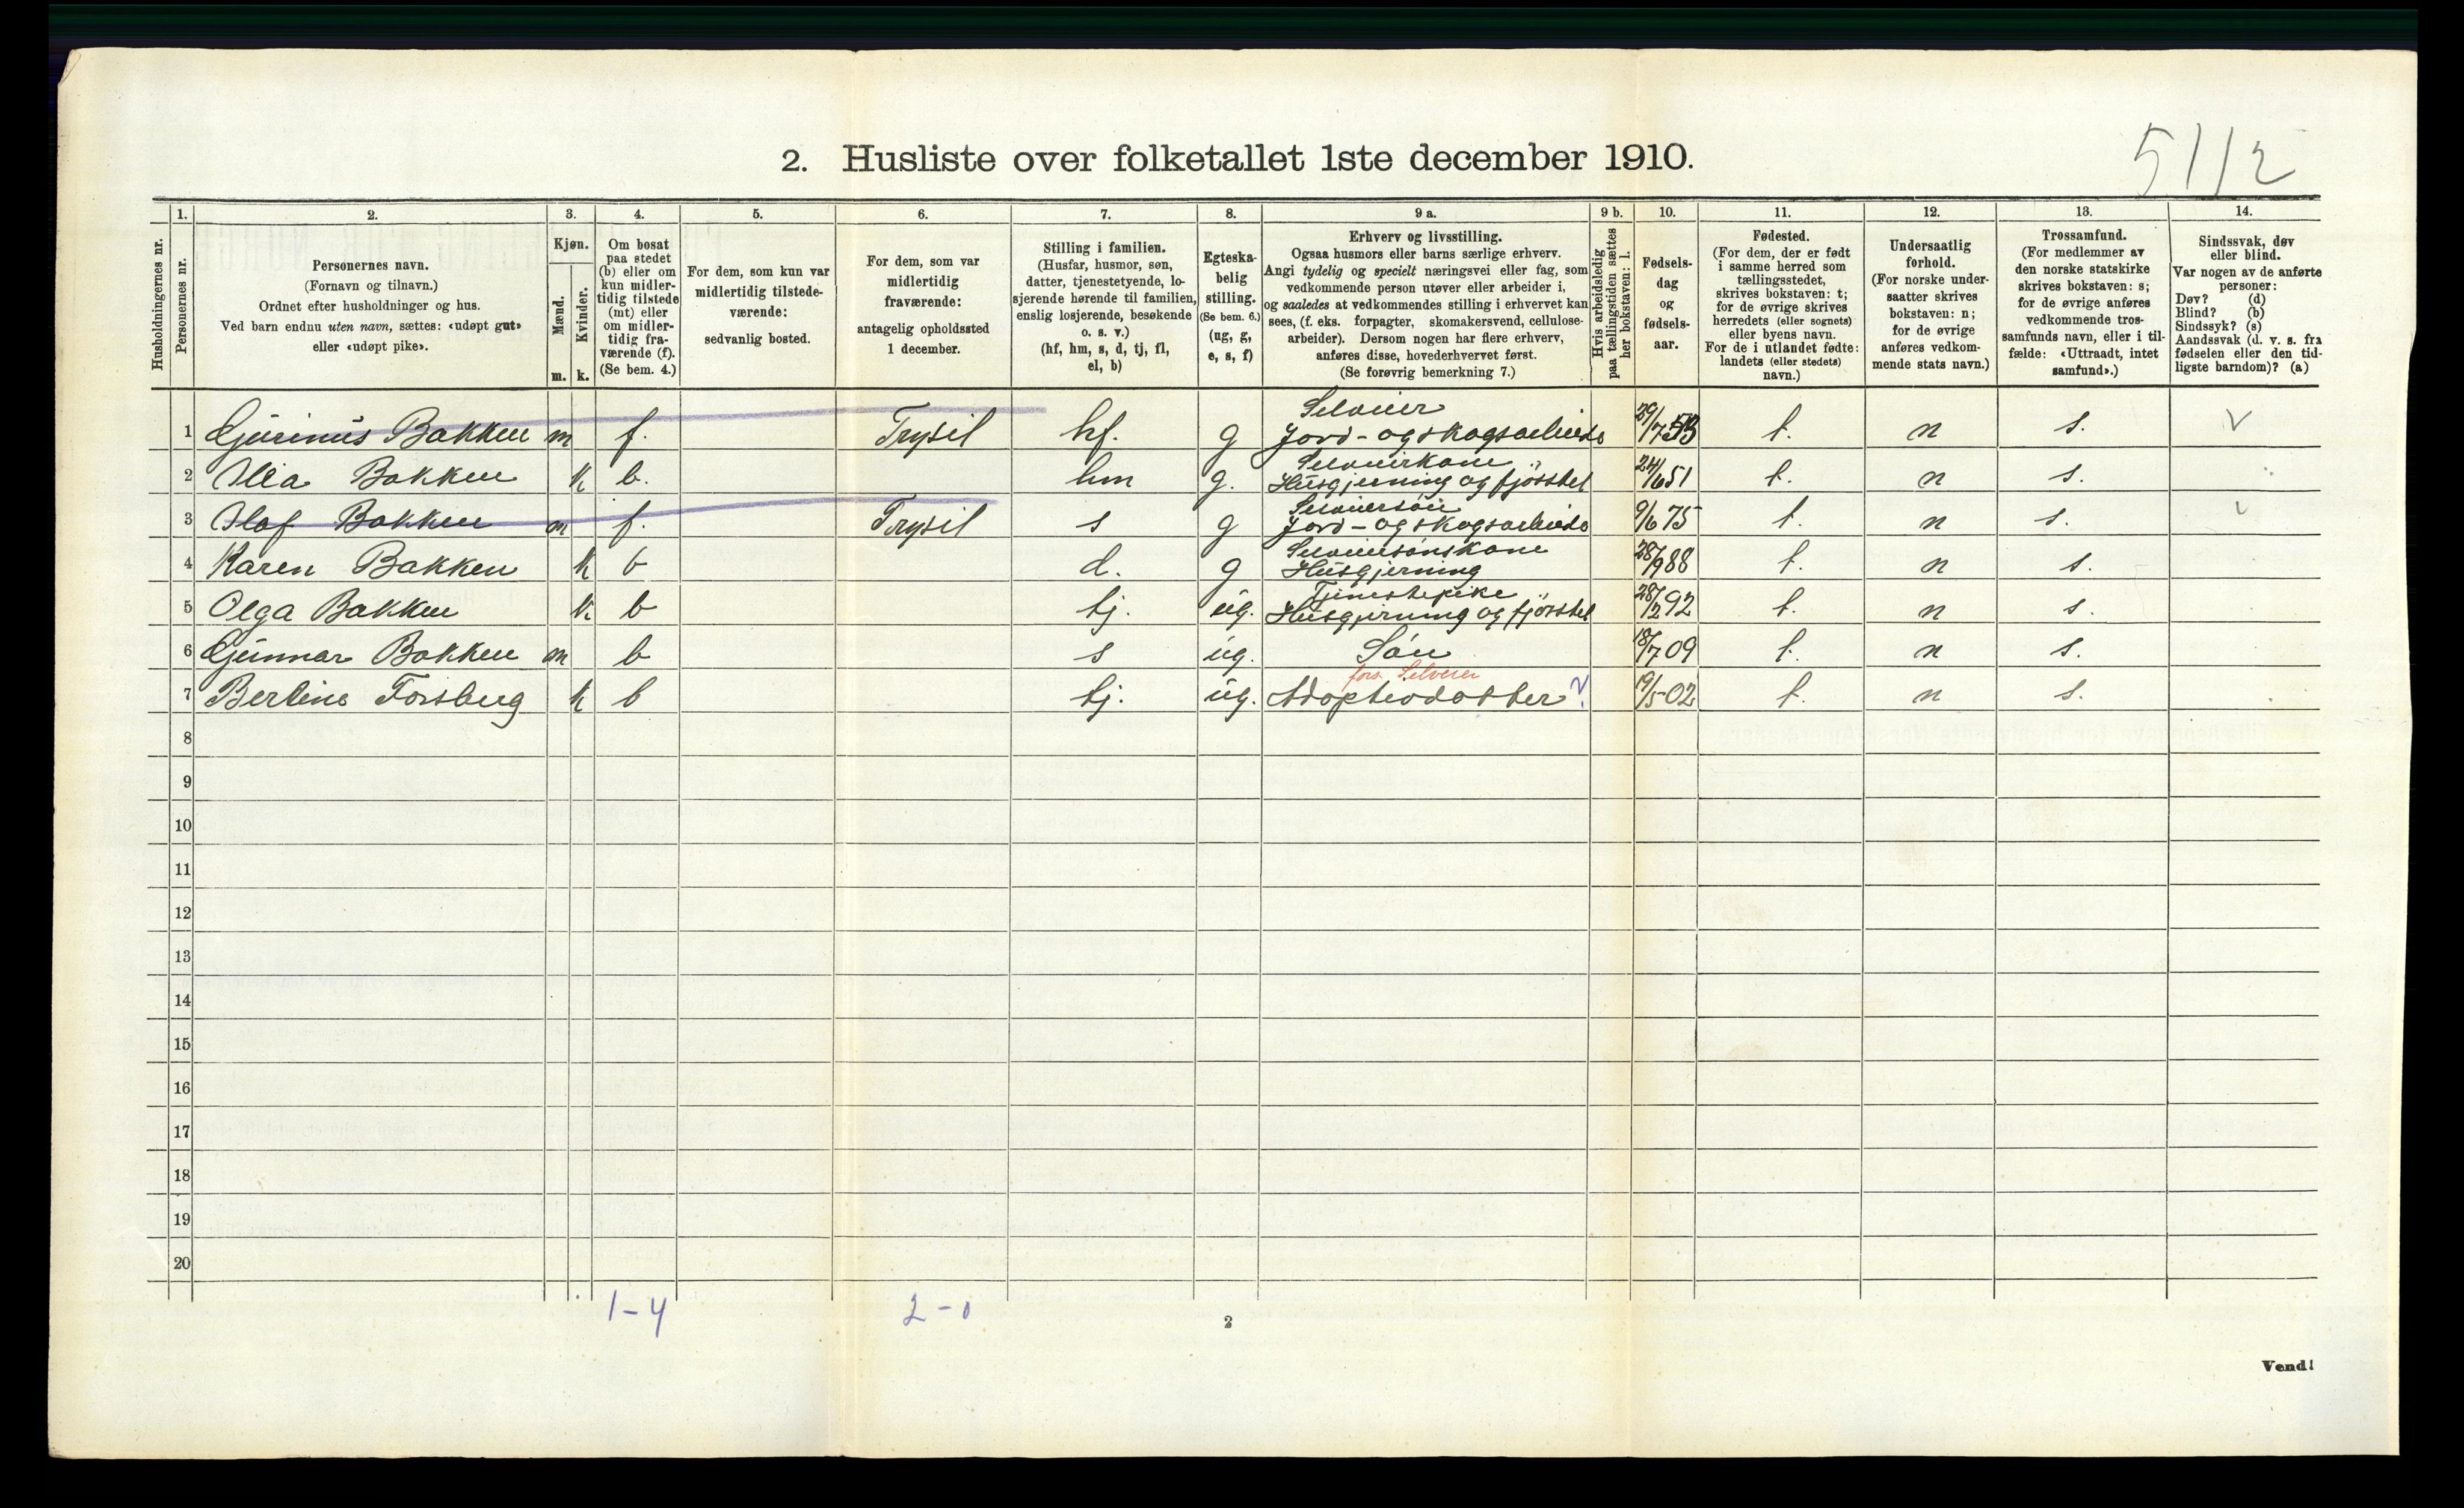 5112
2. Husliste over folketallet 1ste december 1910.
Husholdningernes nr.
1. Personernes nr.
2. Personernes navn.
(Fornavn og tilnavn.)
Ordnet efter husholdninger og hus.
Ved barn endnu uten navn, sættes: «udøpt gut»
eller «udøpt pike».
3. Kjøn.
Mænd. Kvinder.
m. k.
4. Om bosat
paa stedet
(b) eller om
kun midler-
tidig tilstede
(mt) eller
om midler-
tidig fra-
værende (f).
(Se bem. 4.)
5. For dem, som kun var
midlertidig tilstede-
værende:
sedvanlig bosted.
6. For dem, som var
midlertidig
fraværende:
antagelig opholdssted
1 december.
7. Stilling i familien.
(Husfar, husmor, søn,
datter, tjenestetyende, lo-
sjerende hørende til familien,
enslig losjerende, besøkende
o. s. v.)
(hf, hm, s, d, tj, fl,
el, b)
8. Egteska-
belig
stilling.
(Se bem. 6.)
(ug, g,
e, s, f)
9 a. Erhverv og livsstilling.
Ogsaa husmors eller barns særlige erhverv.
Angi tydelig og specielt næringsvei eller fag, som
vedkommende person utøver eller arbeider i,
og saaledes at vedkommendes stilling i erhvervet kan
sees, (f. eks. forpagter, skomakersvend, cellulose-
arbeider). Dersom nogen har flere erhverv,
anføres disse, hovederhvervet først.
(Se forøvrig bemerkning 7.)
9 b. Hvis arbeidsledig
paa tællingstiden sættes
her bokstaven: l.
10. Fødsels-
dag
og
fødsels-
aar.
11. Fødested.
(For dem, der er født
i samme herred som
tællingsstedet,
skrives bokstaven: t;
for de øvrige skrives
herredets (eller sognets)
eller byens navn.
For de i utlandet fødte:
landets (eller stedets)
navn.)
12. Undersaatlig
forhold.
(For norske under-
saatter skrives
bokstaven: n;
for de øvrige
anføres vedkom-
mende stats navn.)
13. Trossamfund.
(For medlemmer av
den norske statskirke
skrives bokstaven: s;
for de øvrige anføres
vedkommende tros-
samfunds navn, eller i til-
fælde: «Uttraadt, intet
samfund».)
14. Sindssvak, døv
eller blind.
Var nogen av de anførte
personer:
Døv? (d)
Blind? (b)
Sindssyk? (s)
Aandssvak (d. v. s. fra
fødselen eller den tid-
ligste barndom)? (a)
Selveier
1 Gurinus Bakken m f. Trysil hf. g Jord- og skogsarbeide 29/7 53 t. n s. V
Selveierkone
2 Bakken k b. hm g. Husgjerning og fjösstel 24/6 51 t. n s.
Selveiersön
3 Olaf Bakken m f. Trysil s g Jord- og skogsarbeide 9/6 75 t. n s. v
Selveiersönskone
4 Karen Bakken k b d. g Husgjerning 28/9 88 t. n s.
Tjenestepike
5 Olga Bakken k b tj. ug. Husgjerning og fjösstel 28/2 92 t. n s.
6 Gunnar Bakken m b s ug. Sön 18/7 09 t. n s.
fors. Selveier
7 Bertine Forsberg k b tj. ug. Adoptivdatter 19/5 02 t. n s.
8
9
10
11
12
13
14
15
16
17
18
19
20
1-4 2-0
2
Vend!